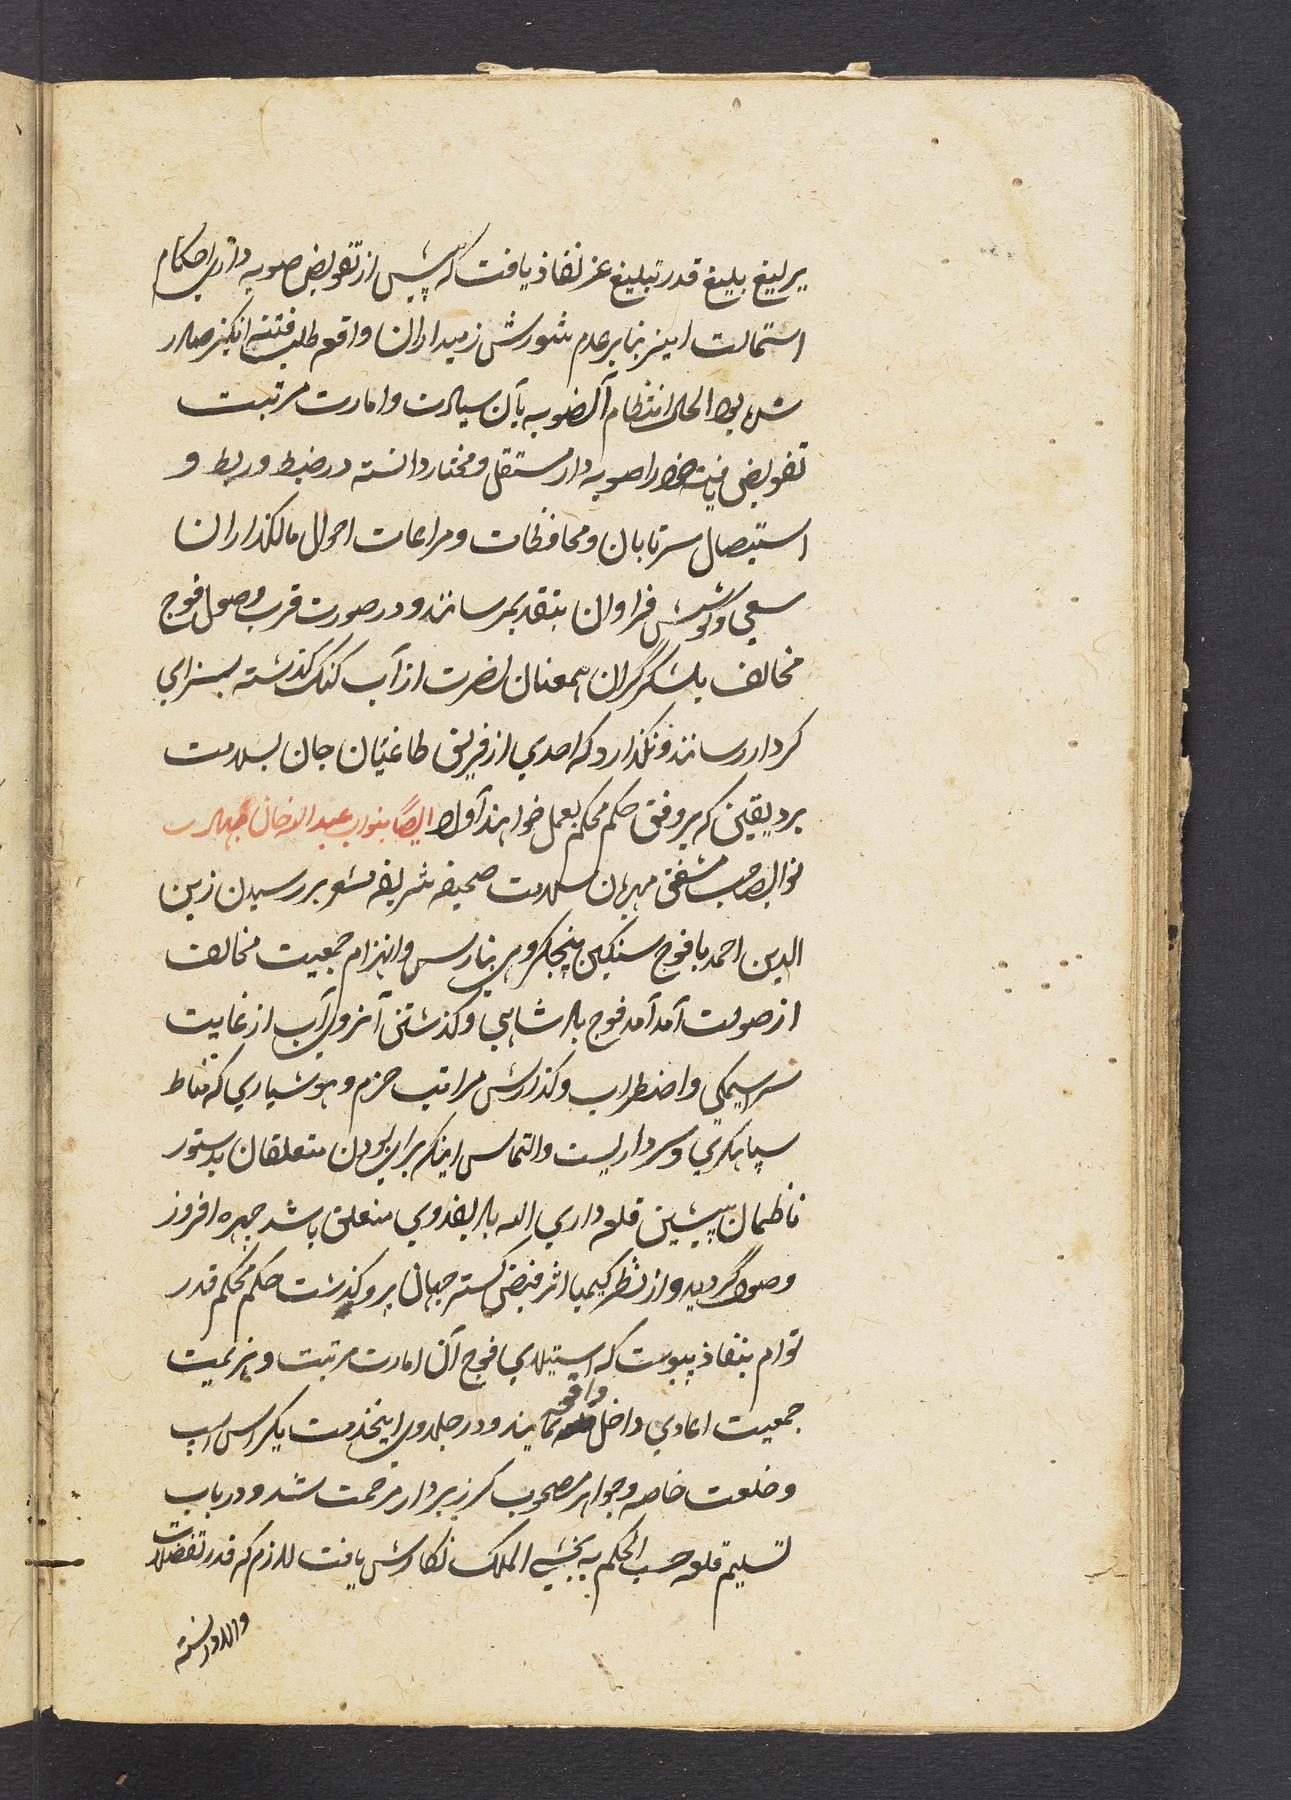 یرلیغ بلیغ قدر تبلیغ عز نفاذ یافت که پیش از تفویض صوبه داری احکام
استمالت امیز بنابر عدم شورش زمیداران واقعه طلب فتنه انکیز صادر
شده بود الحال انتظام آنصوبه بآن سیادت و امارت مرتبت
تفویض یافته خود را صوبه دار مستقل و مختار دانسته در ضبط و ربط و
استیصال سرتابان و محافظات و مراعات احوال مالکذاران
سعی و کوشش فراوان بتقدیم رسانند و در صورت قرب وصول فوج
مخالف بلشکر گران همعنان نصرت از آب کنک کذشته بسزای
کردار رسانند و نکذارد که احدی از فریق طاغیان جان بسلامت
برد یقین که بر وفق حکم محکم بعمل خواهند آورد ایضا بنواب عبد الله خان بهادر
نواب صاحب مشفق مهربان سلامت صحیفه شریفه مشعر بر رسیدن زین
الدین احمد با فوج سنکین پنجکروهی بنارس و انهزام جمعیت مخالف
از صولت آمد آمد فوج پادشاهی و کذشتن آنروی آب از غایت
سراسیمکی و اضطراب و کذارش مراتب حزم و هوشیاری که مناط
سپاهکری و سرداریست و التماس اینکه برای بودن متعلقان بدستور
ناظمان پیشین قلعه داری اله باد بفدوی متعلق باشد چهره افروز
وصول گردید و از نظر کیمیا اثر فیض کستر جهان پرور کذشت حکم محکم قدر
توام بنفاذ پیوست که استیلای فوج آن امارت مرتبت و هزیمت
جمعیت اعادی داخل واقعه نمایند و در جلدوی اینخدمت یکراس اسپ
و خلعت خاصه و جواهر مصحوب کرز بردار مرحمت شد و در باب
تسلیم قلعه حسب الحکم به بخشی الملک نکارش یافت لازم که قدر تفضلات
والا دانسته